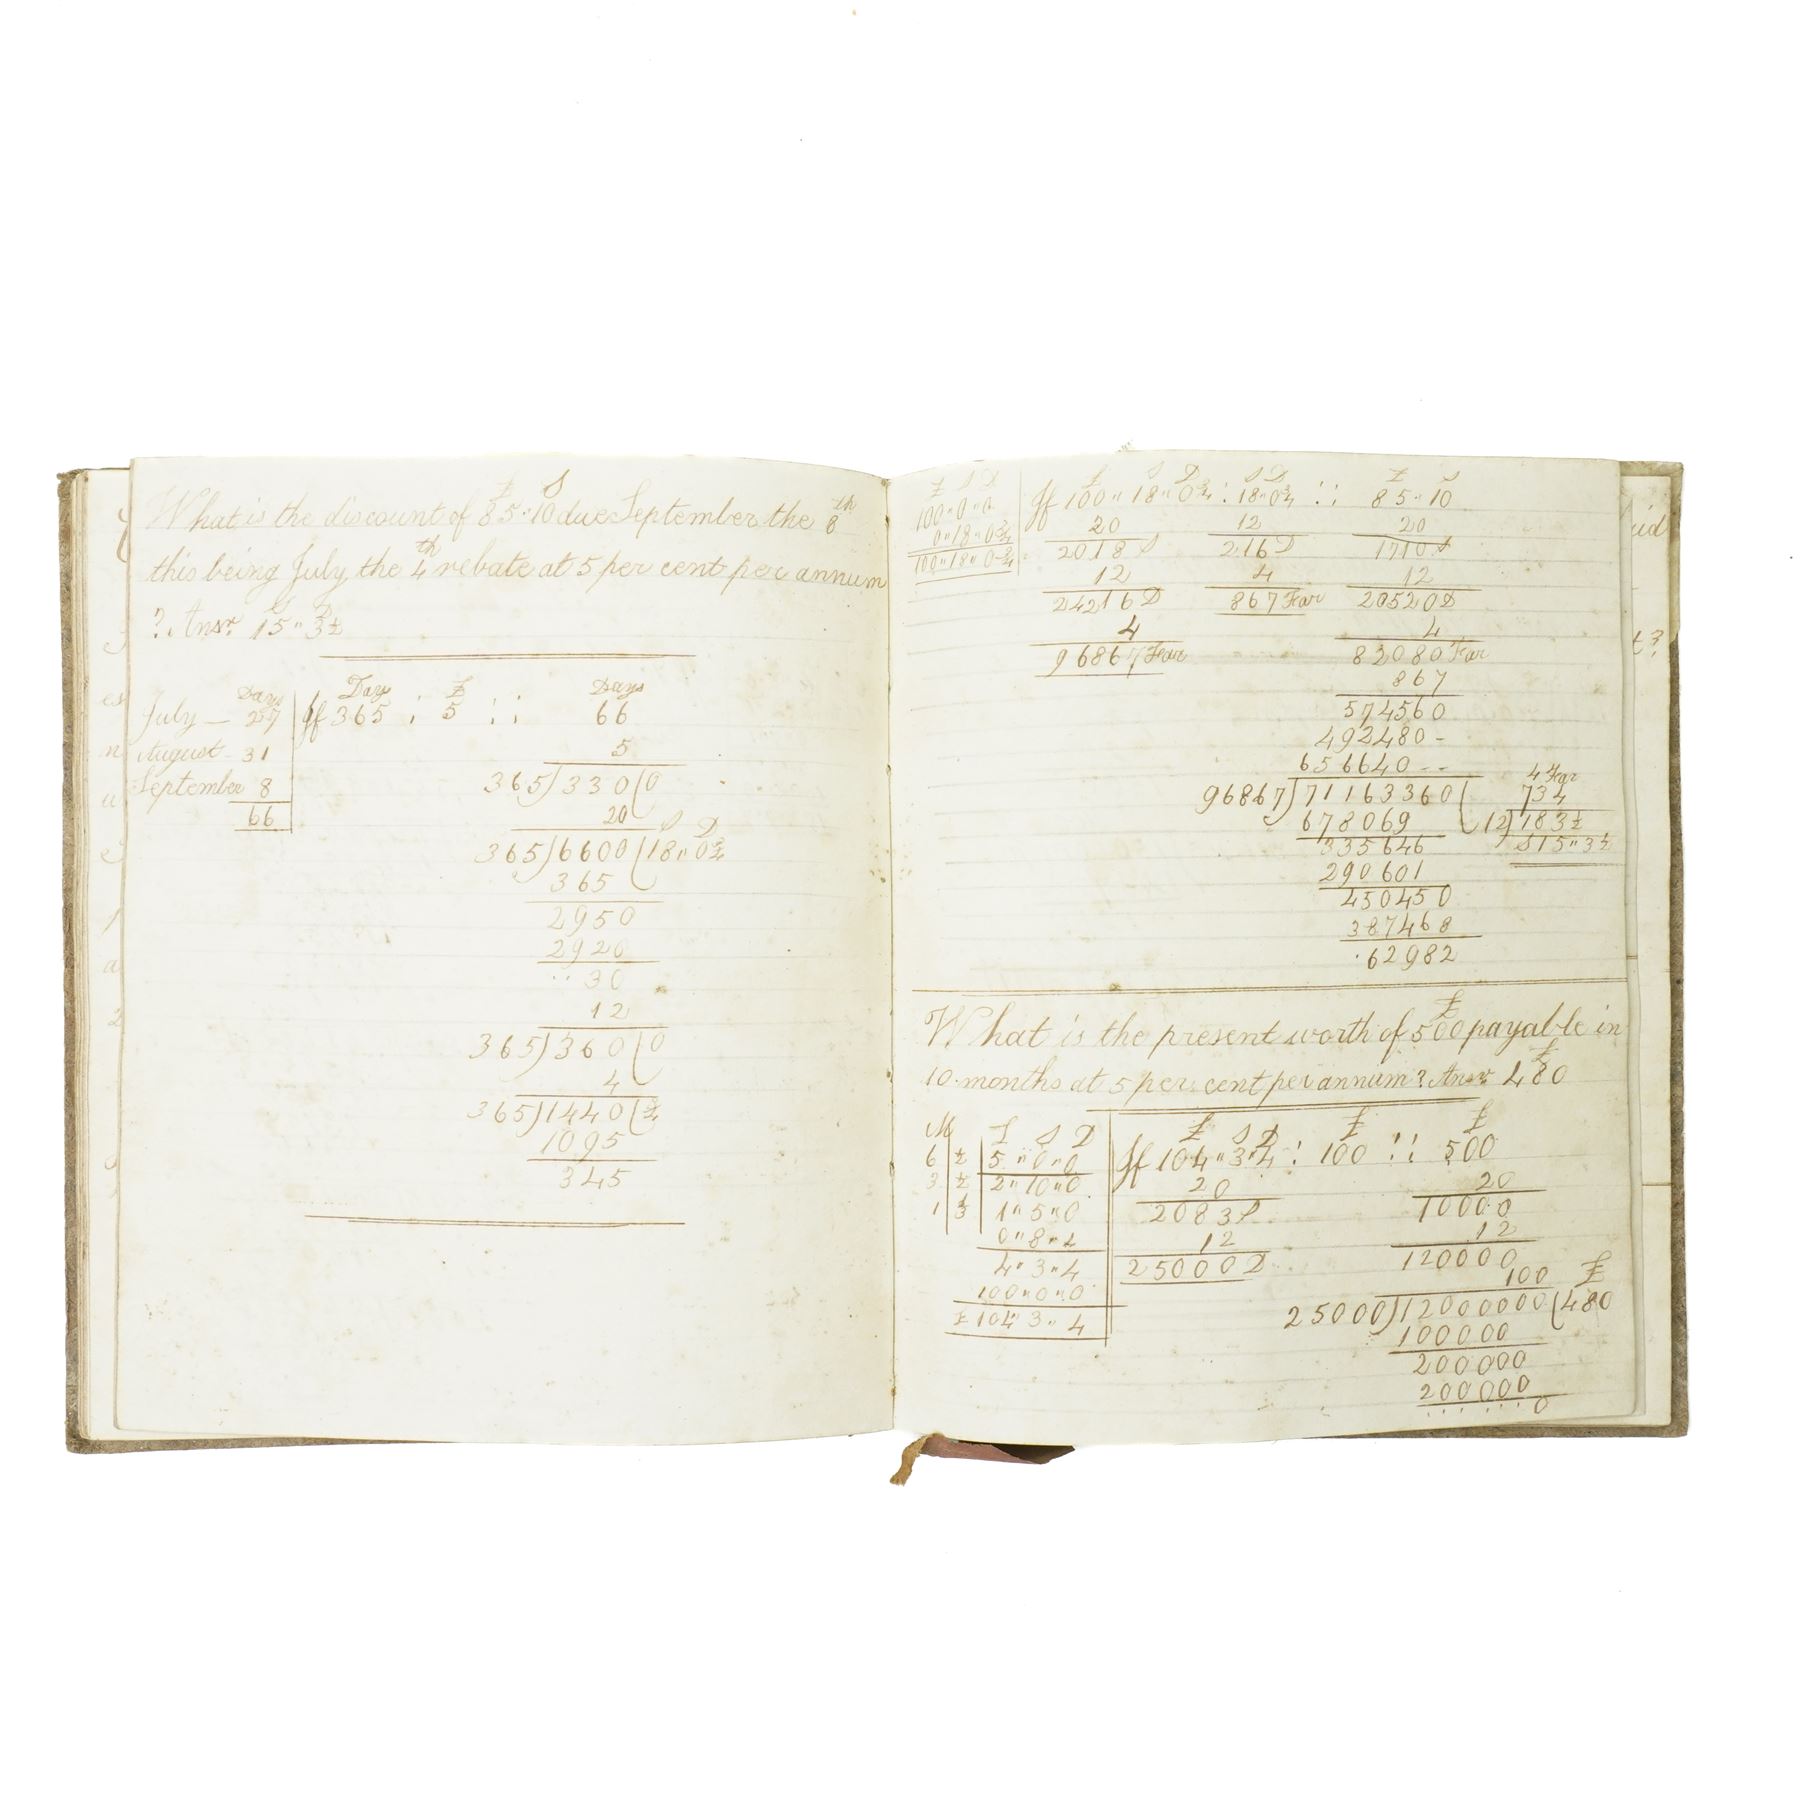 What is the discount of £85 " 10 S due September the 8th
this being July the 4th rebate at 5 per cent per annum
? Ansr. 15 " 3½
Days
July — 27
August - 31
September 8
66
Days £ Days
If 365 : 5 :: 66
5
365)330(0
20 S D
365)6600(18 " 0¾
365
2950
2920
30
12
365)360(0
4
365)1440(¾
1095
345
£ S D
100 " 0 " 0
0 " 18 " 0¾
100 " 18 " 0¾
£ S D S D £ S
If 100 " 18 " 0¾ : 18 " 0¾ :: 85 " 10
20 12 20
2018 S 216 D 1710 S
12 4 12
24216 D 867 Far 20520 D
4 4
96867 Far 82080 Far
867
574560
492480 -
656640 - -
4 Far
96867)71163360(734
678069 12)183½
335646 S15 " 3½
290601
450450
387468
62982
What is the present worth of £500 payable in
10 months at 5 per cent per annum? Ansr £480
M £ S D
6 ½ 5 " 0 " 0
3 ½ 2 " 10 " 0
1 ⅓ 1 " 5 " 0
0 " 8 " 4
4 " 3 " 4
100 " 0 " 0
£ 104 " 3 " 4
£ S D £ £
If 104 " 3 " 4 : 100 :: 500
20 20
2083 S 10000
12 12
25000 D 120000
100 £
25000)12000000(480
100000
200000
200000
0